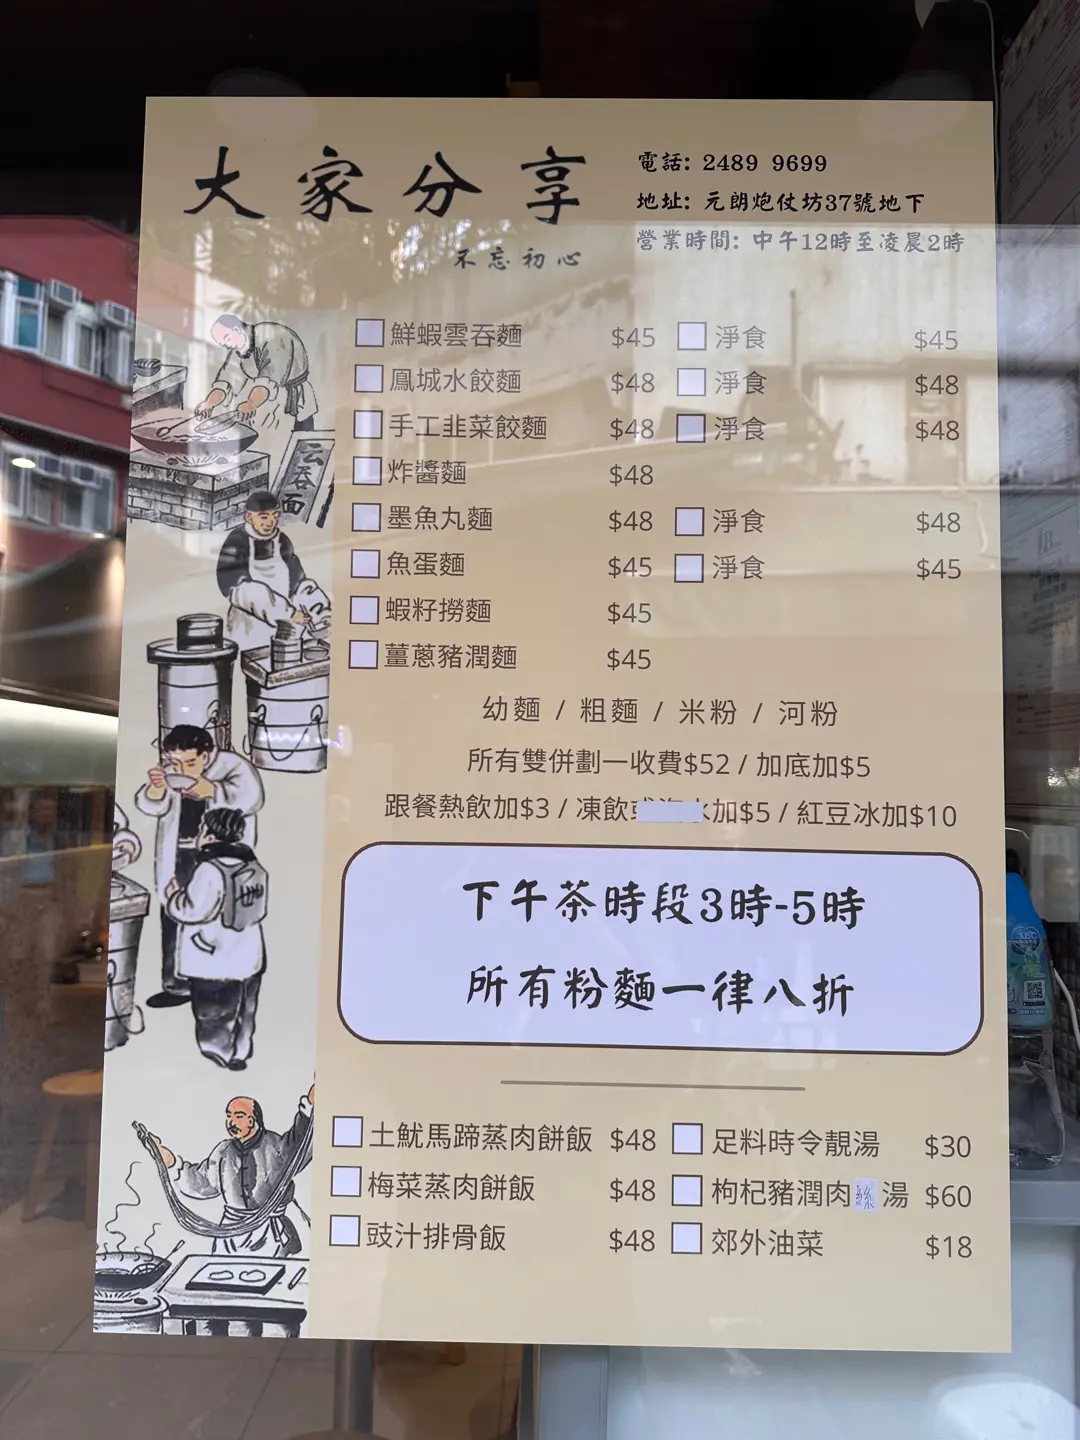 大家分享
不忘初心
電話: 2489 9699
地址: 元朗炮仗坊37號地下
營業時間: 中午12時至凌晨2時
鮮蝦雲吞麵 $45 淨食 $45
鳳城水餃麵 $48 淨食 $48
手工韭菜餃麵 $48 淨食 $48
炸醬麵 $48
墨魚丸麵 $48 淨食 $48
魚蛋麵 $45 淨食 $45
蝦籽撈麵 $45
薑蔥豬潤麵 $45
云吞面
幼麵 / 粗麵 / 米粉 / 河粉
所有雙併劃一收費$52 / 加底加$5
跟餐熱飲加$3 / 凍飲 加$5 / 紅豆冰加$10
下午茶時段3時-5時
所有粉麵一律八折
土魷馬蹄蒸肉餅飯 $48 足料時令靚湯 $30
梅菜蒸肉餅飯 $48 枸杞豬潤肉絲湯 $60
豉汁排骨飯 $48 郊外油菜 $18